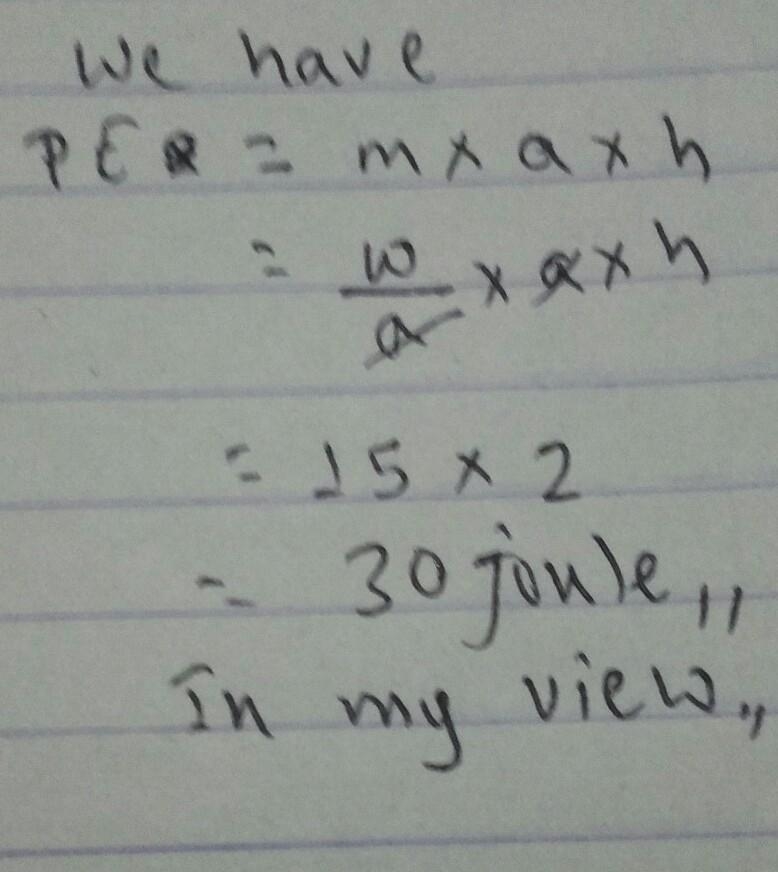 We have
PE = m x a x h
= w/a x a x h
= 15 x 2
= 30 joule,,
In my view,,